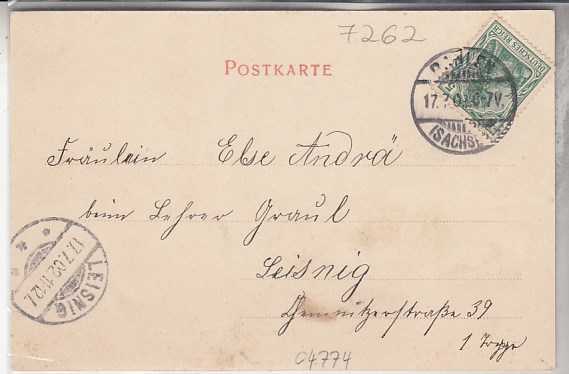 7262
POSTKARTE
DEUTSCHES REICH
DAHLEN
17.7.02 6-7V.
(SACHSEN)
Fräulein Else Andrä
beim Lehrer Graul
Leisnig
Chemnitzerstraße 39
1 Treppe
LEISNIG
17.7.02.11-12V.
04774